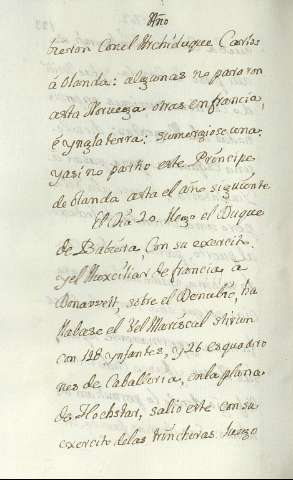 Año
bieron Con el Archiduque Carlos
á olanda: algunas no pararon
asta Noruega. otras en francia,
é ynglaterra: sumergiose una.
y asi no partio este Principe
de olanda asta el año siguiente.
El Dia 20. llego el Duque
de Babiera, Con su exercito.
y el Auxciliar de francia, a
Donauvert, sobre el Denubio, ha
llabase el Vel Mariscal stirun
con 12 U ynfantes, y 26 esquadro
nes de Caballeria, en la plana
de Hochstar, salio este con su
exercito de las trincheras. luego